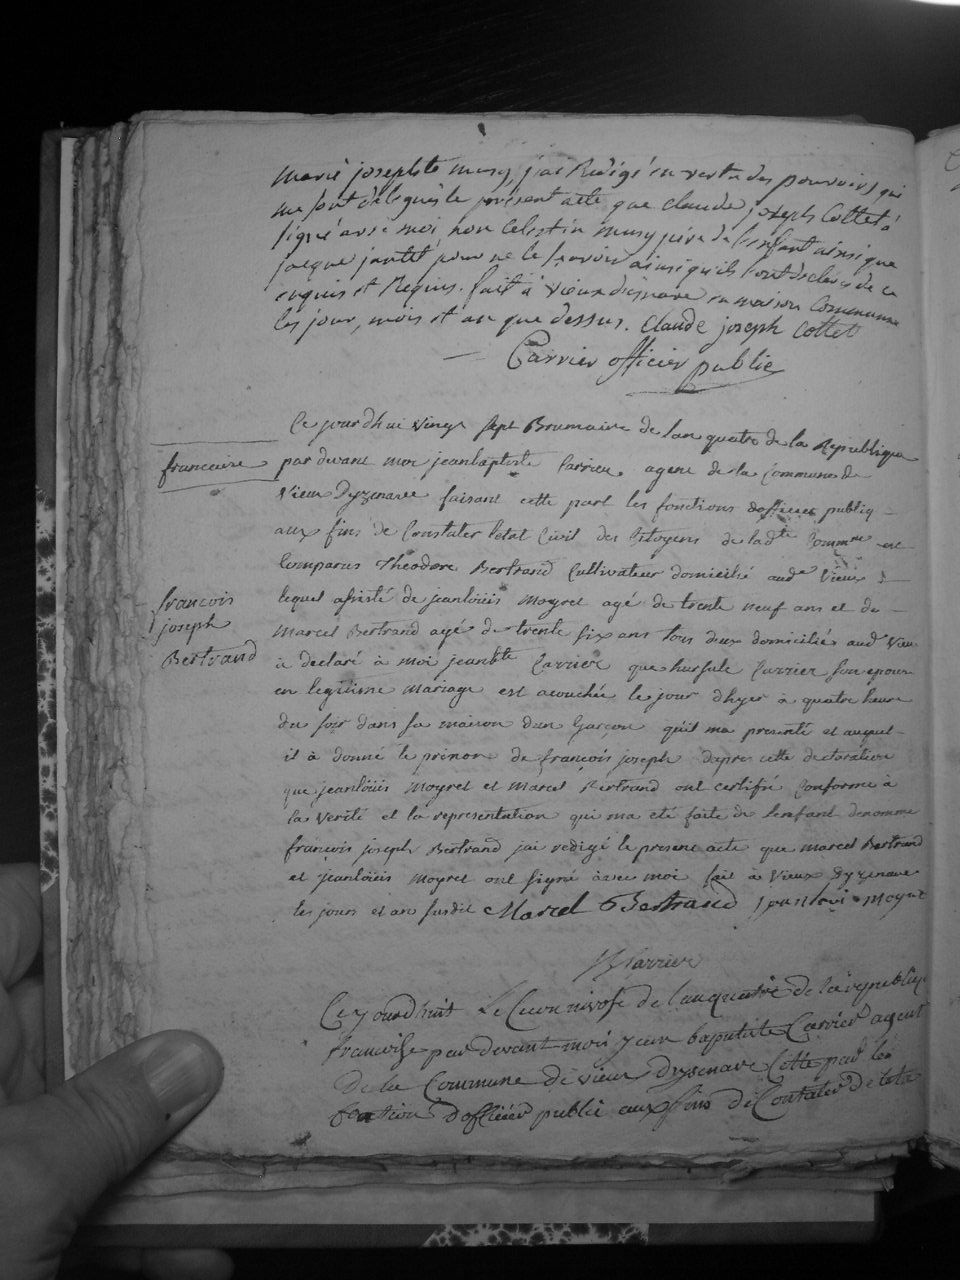 marie josephte mury, j'ai Redigé en vertu des pouvoirs qui
me sont délégués le présent acte que claude joseph Collet à
signé avec moi non Celestin mury père de l'enfant ainsi que
jacque jantet pour ne le scavoir ainsi qu'ils l'ont declaré de ce
enquis et Requis. fait à vieux disenave en maison Commune
les jour, mois et an que dessus. Claude joseph Collet
Carrier officier public
Ce jourdhui vingt sept Brumaire de lan quatre de la Republique
francaise
par devant moi jeanbaptiste Carrier agent de la Commune de
vieux dyzenave faisant cette part les fonctions dofficier public
aux fins de Constater letat Civil des Citoyens de ladte Commune est
Comparus Theodore Bertrand Cultivateur domicilié aude vieux d
francois
joseph
Bertrand
lequel assisté de jeanlöuis moyret agé de trente neuf ans et de
marcel Bertrand agé de trente six ans tous deux domiciliés aud vieu
à declaré à moi jeanbte Carrier que hursule Carrier son epouse
en legitime mariage est acouchée le jour dhyer à quatre heure
du soir dans sa maison dun Garcon quil ma presenté et auquel
il à donné le prénom de françois joseph dapre cette declaration
que jeanlöuis moyret et marcel Bertrand ont certifié Conforme à
la verité et la representation qui ma eté faite de lenfant denomme
françois joseph Bertrand jai redigé le present acte que marcel Bertrand
et jeanlöuis moyret ont signé avec moi fait à vieux dyzenave
les jours et an susdit Marcel Bertrand jean loui moyret
Carrier
Ce jourdhuit le nivose de lan quatre de la republique
francoise par devant moi jean baptiste Carrier agent
de la Commune de vieux dysenave Cette part les
fontion dofficier publi aux fins de Contater de leta